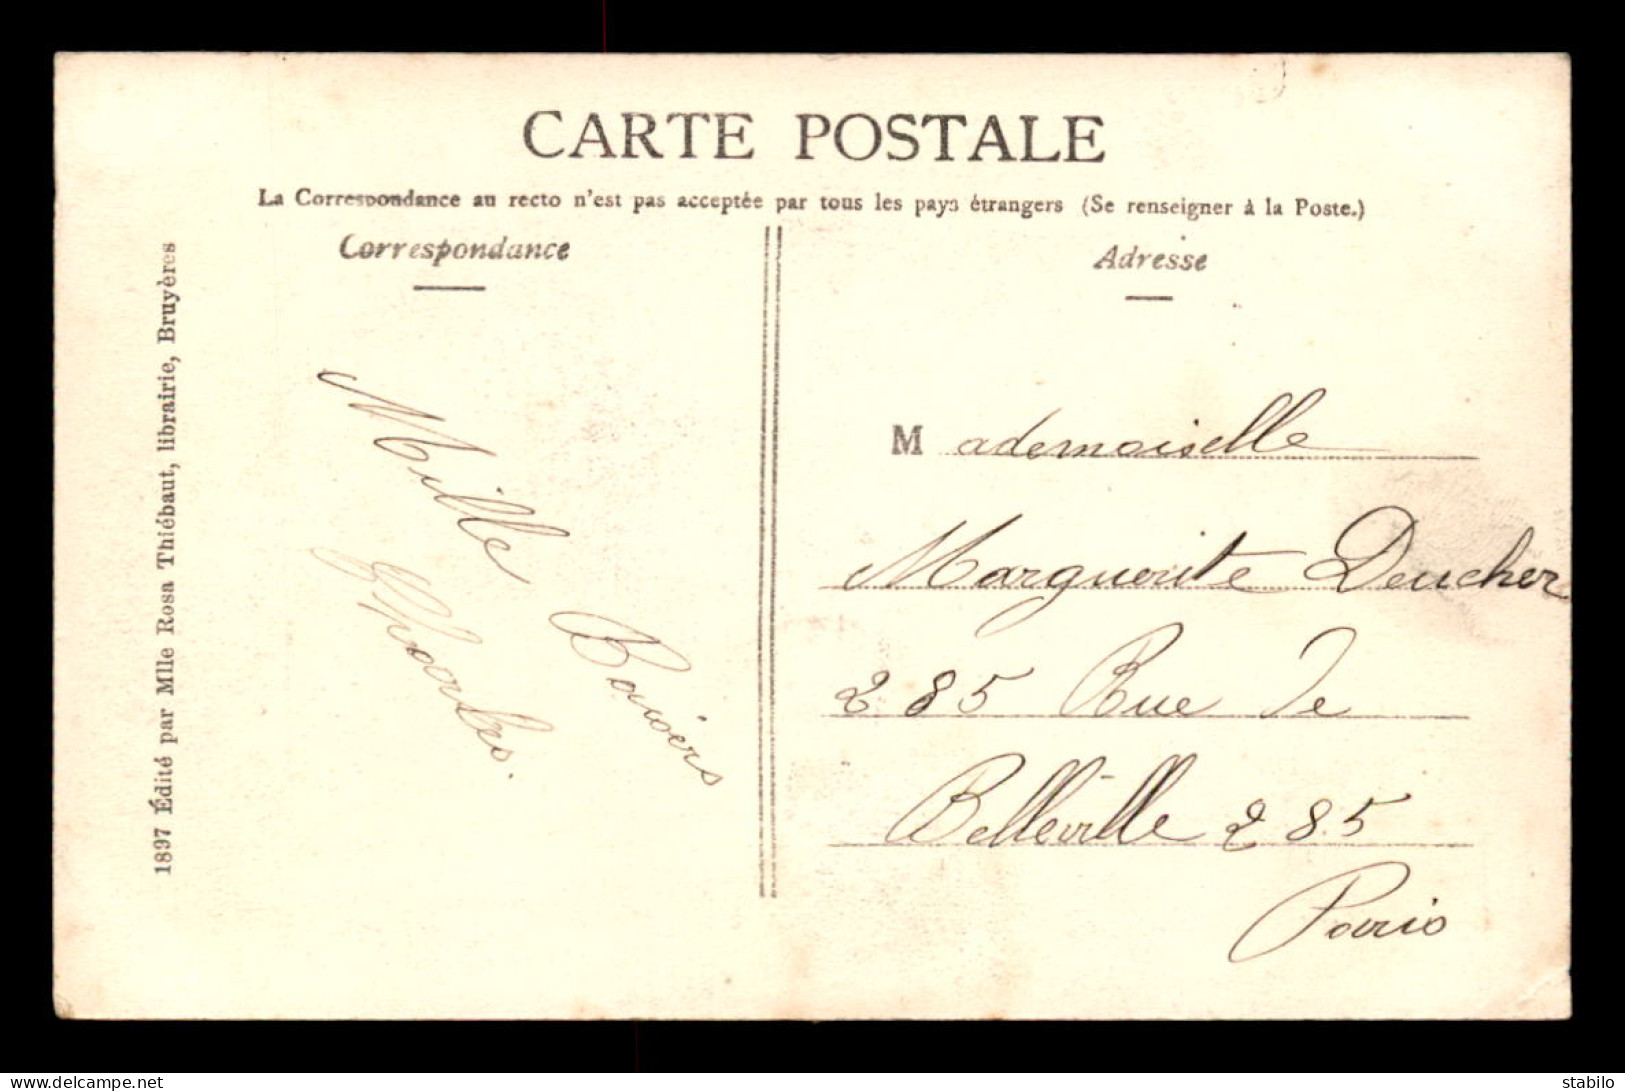 CARTE POSTALE
La Correspondance au recto n'est pas acceptée par tous les pays étrangers (Se renseigner à la Poste.)
Correspondance
Adresse
1897 Édité par Mlle Rosa Thiébaut, librairie, Bruyères
Mille Baisers
Mademoiselle
Marguerite Deucher
285 Rue de
Belleville 285
Paris
delcampe.net
stabilo